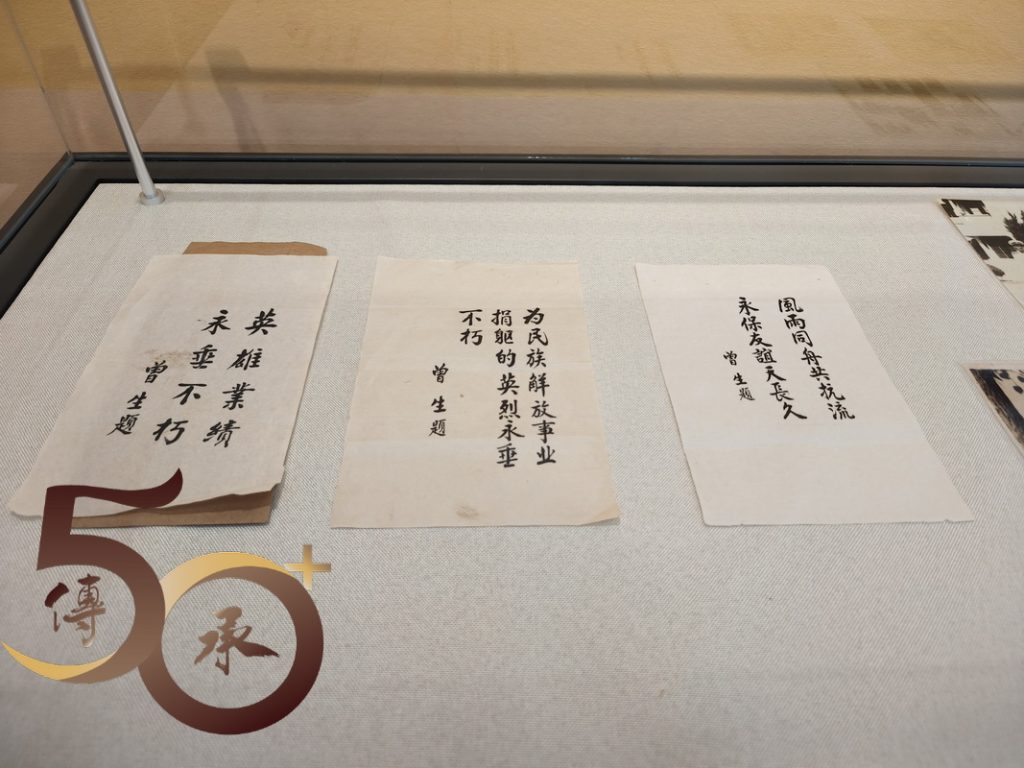 英雄業績
永垂不朽
曾生題
为民族解放事业
捐躯的英烈永垂
不朽
曾生题
風雨同舟共抗流
永保友誼天長久
曾生題
50+
傳承